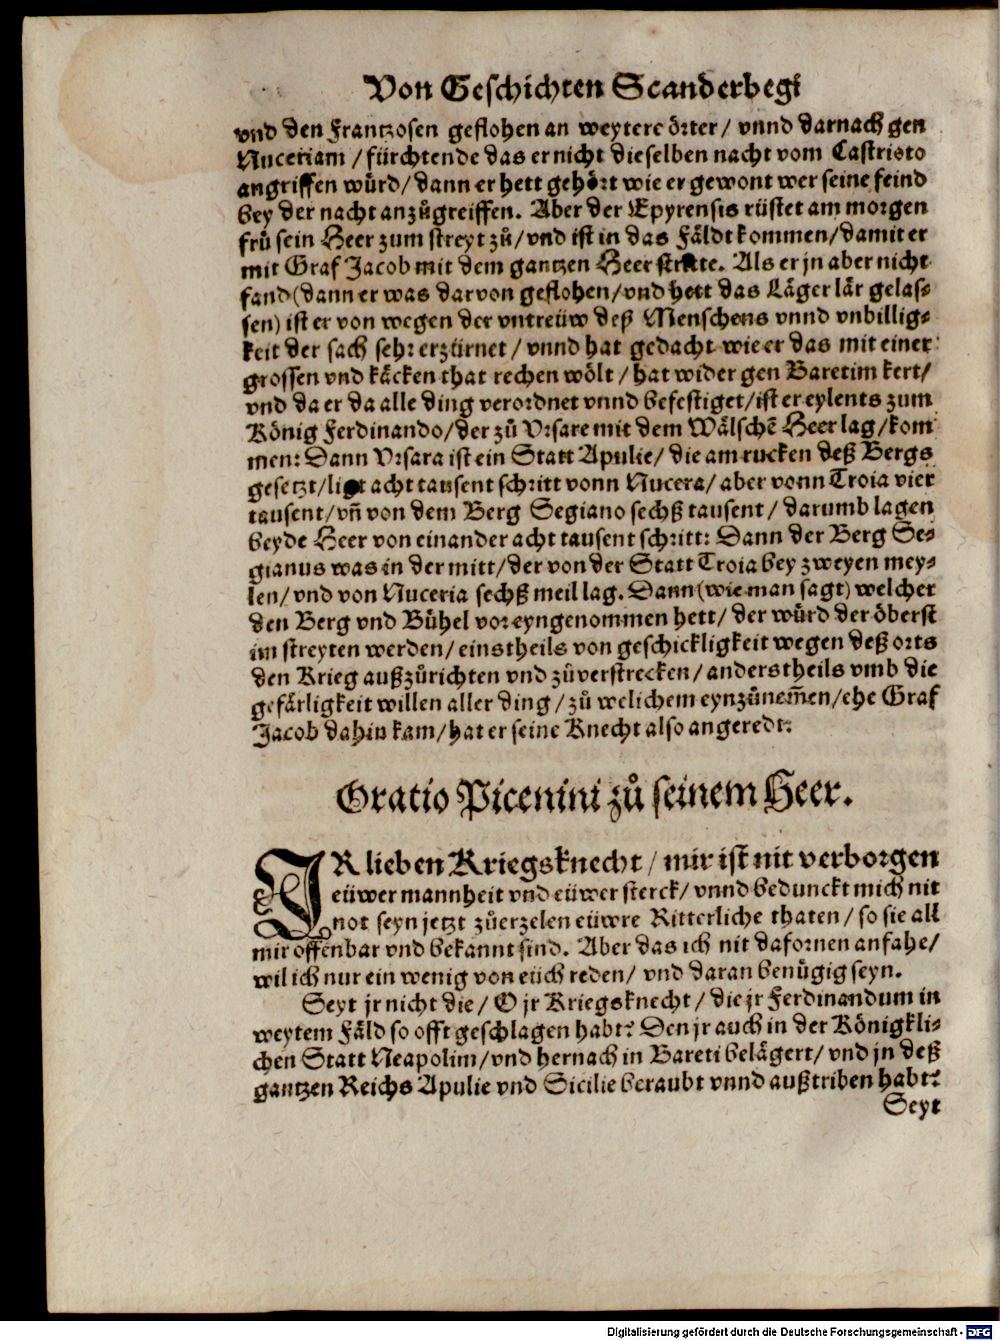 Von Geschichten Scanderbegi
vnd den Frantzosen geflohen an weytere örter / vnnd darnach gen
Nuceriam / fürchtende das er nicht dieselben nacht vom Castrioto
angriffen würd / dann er hett gehört wie er gewont wer seine feind
bey der nacht anzůgreiffen. Aber der Epyrensis rüstet am morgen
frů sein Heer zum streyt zů / vnd ist in das Fäldt kommen / damit er
mit Graf Jacob mit dem gantzen Heer stritte. Als er jn aber nicht
fand (dann er was darvon geflohen / vnd hett das Läger lär gelas-
sen) ist er von wegen der vntreüw deß Menschens vnnd vnbillig-
keit der sach sehr erzürnet / vnnd hat gedacht wie er das mit einer
grossen vnd käcken that rechen wölt / hat wider gen Baretim kert /
vnd da er da alle ding verordnet vnnd befestiget / ist er eylents zum
König Ferdinando / der zů Vrsare mit dem Wälschē Heer lag / kom
men: Dann Vrsara ist ein Statt Apulie / die am rucken deß Bergs
gesetzt / ligt acht tausent schritt vonn Nucera / aber vonn Troia vier
tausent / vñ von dem Berg Segiano sechß tausent / darumb lagen
beyde Heer von einander acht tausent schritt: Dann der Berg Se-
gianus was in der mitt / der von der Statt Troia bey zweyen mey-
len / vnd von Nuceria sechß meil lag. Dann (wie man sagt) welcher
den Berg vnd Bühel vor eyngenommen hett / der würd der öberst
im streyten werden / einstheils von geschickligkeit wegen deß orts
den Krieg außzůrichten vnd zůverstrecken / anderstheils vmb die
gefärligkeit willen aller ding / zů welichem eynzůnem̃en / ehe Graf
Jacob dahin kam / hat er seine Knecht also angeredt:
Oratio Picenini zů seinem Heer.
IR lieben Kriegsknecht / mir ist nit verborgen
eüwer mannheit vnd eüwer sterck / vnnd bedunckt mich nit
not seyn jetzt zůerzelen eüwre Ritterliche thaten / so sie all
mir offenbar vnd bekannt sind. Aber das ich nit dafornen anfahe /
wil ich nur ein wenig von eüch reden / vnd daran benügig seyn.
Seyt jr nicht die / O jr Kriegsknecht / die jr Ferdinandum in
weytem Fäld so offt geschlagen habt? Den jr auch in der Königkli-
chen Statt Neapolim / vnd hernach in Bareti belägert / vnd jn deß
gantzen Reichs Apulie vnd Sicilie beraubt vnnd außtriben habt?
Seyt
Digitalisierung gefördert durch die Deutsche Forschungsgemeinschaft - DFG